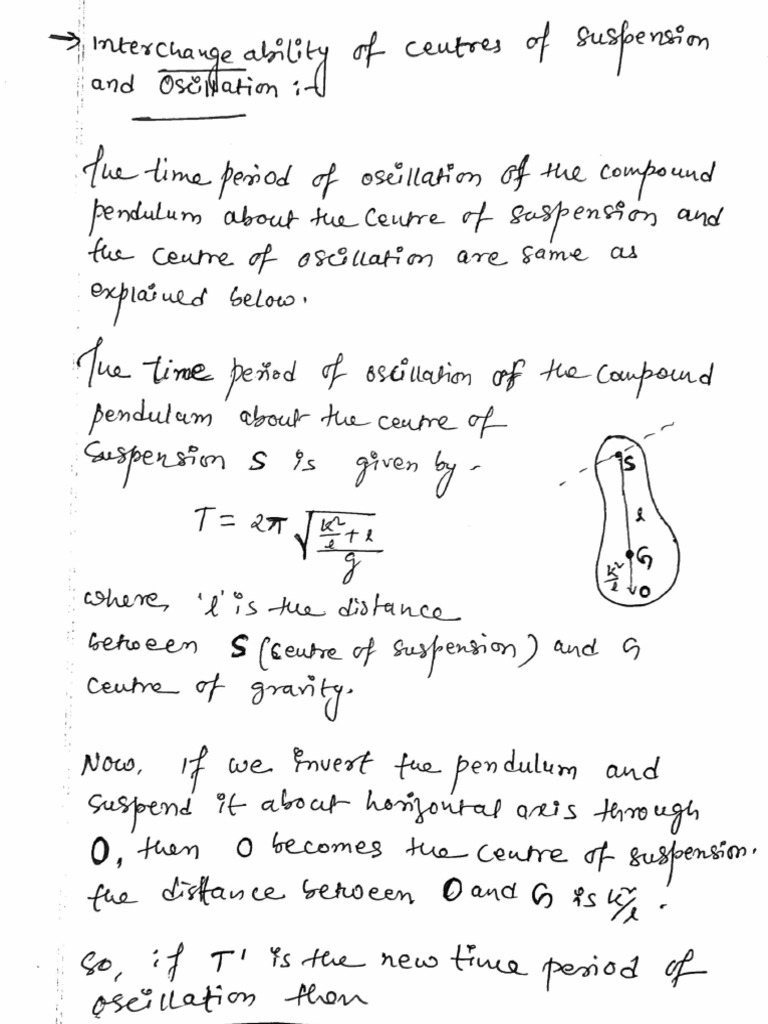 → Interchangeability of centres of suspension
and Oscillation :-
The time period of oscillation of the compound
pendulum about the centre of suspension and
the centre of oscillation are same as
explained below.
The time period of oscillation of the compound
pendulum about the centre of
suspension S is given by -
T = 2π √((k²/l + l)/g)
S
l
G
k²/l
O
where, 'l' is the distance
between S (centre of suspension) and G
centre of gravity.
Now, if we invert the pendulum and
suspend it about horizontal axis through
O, then O becomes the centre of suspension.
the distance between O and G is k²/l.
So, if T' is the new time period of
oscillation then